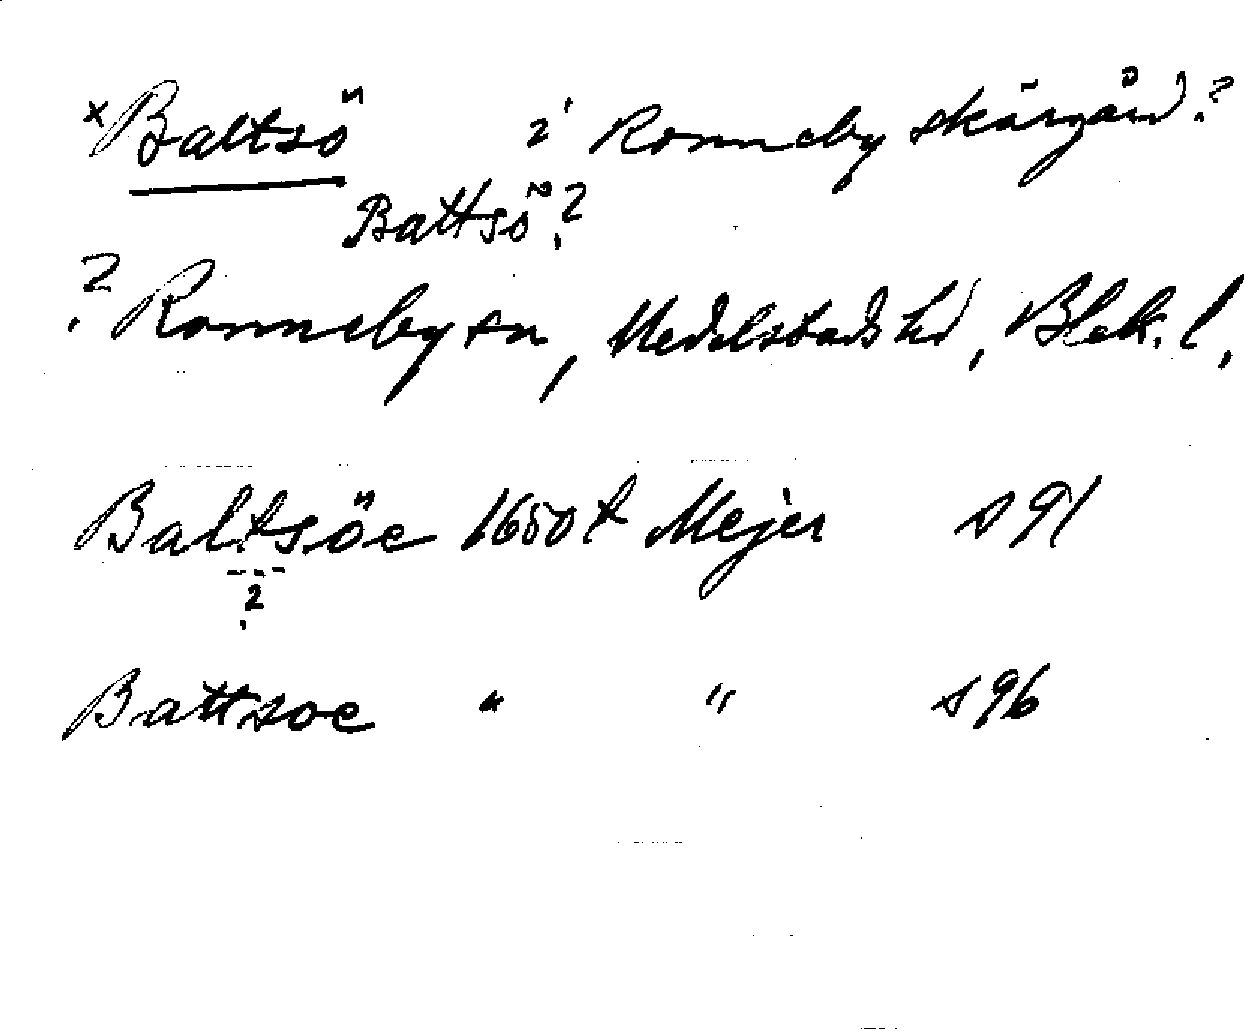 ×Baltsö i Ronneby skärgård?
Battsö?
? Ronneby sn, Medelstads hd, Blek. l.
Baltsöe 1650 t Mejer s 91
?
Battsoe " " s 96